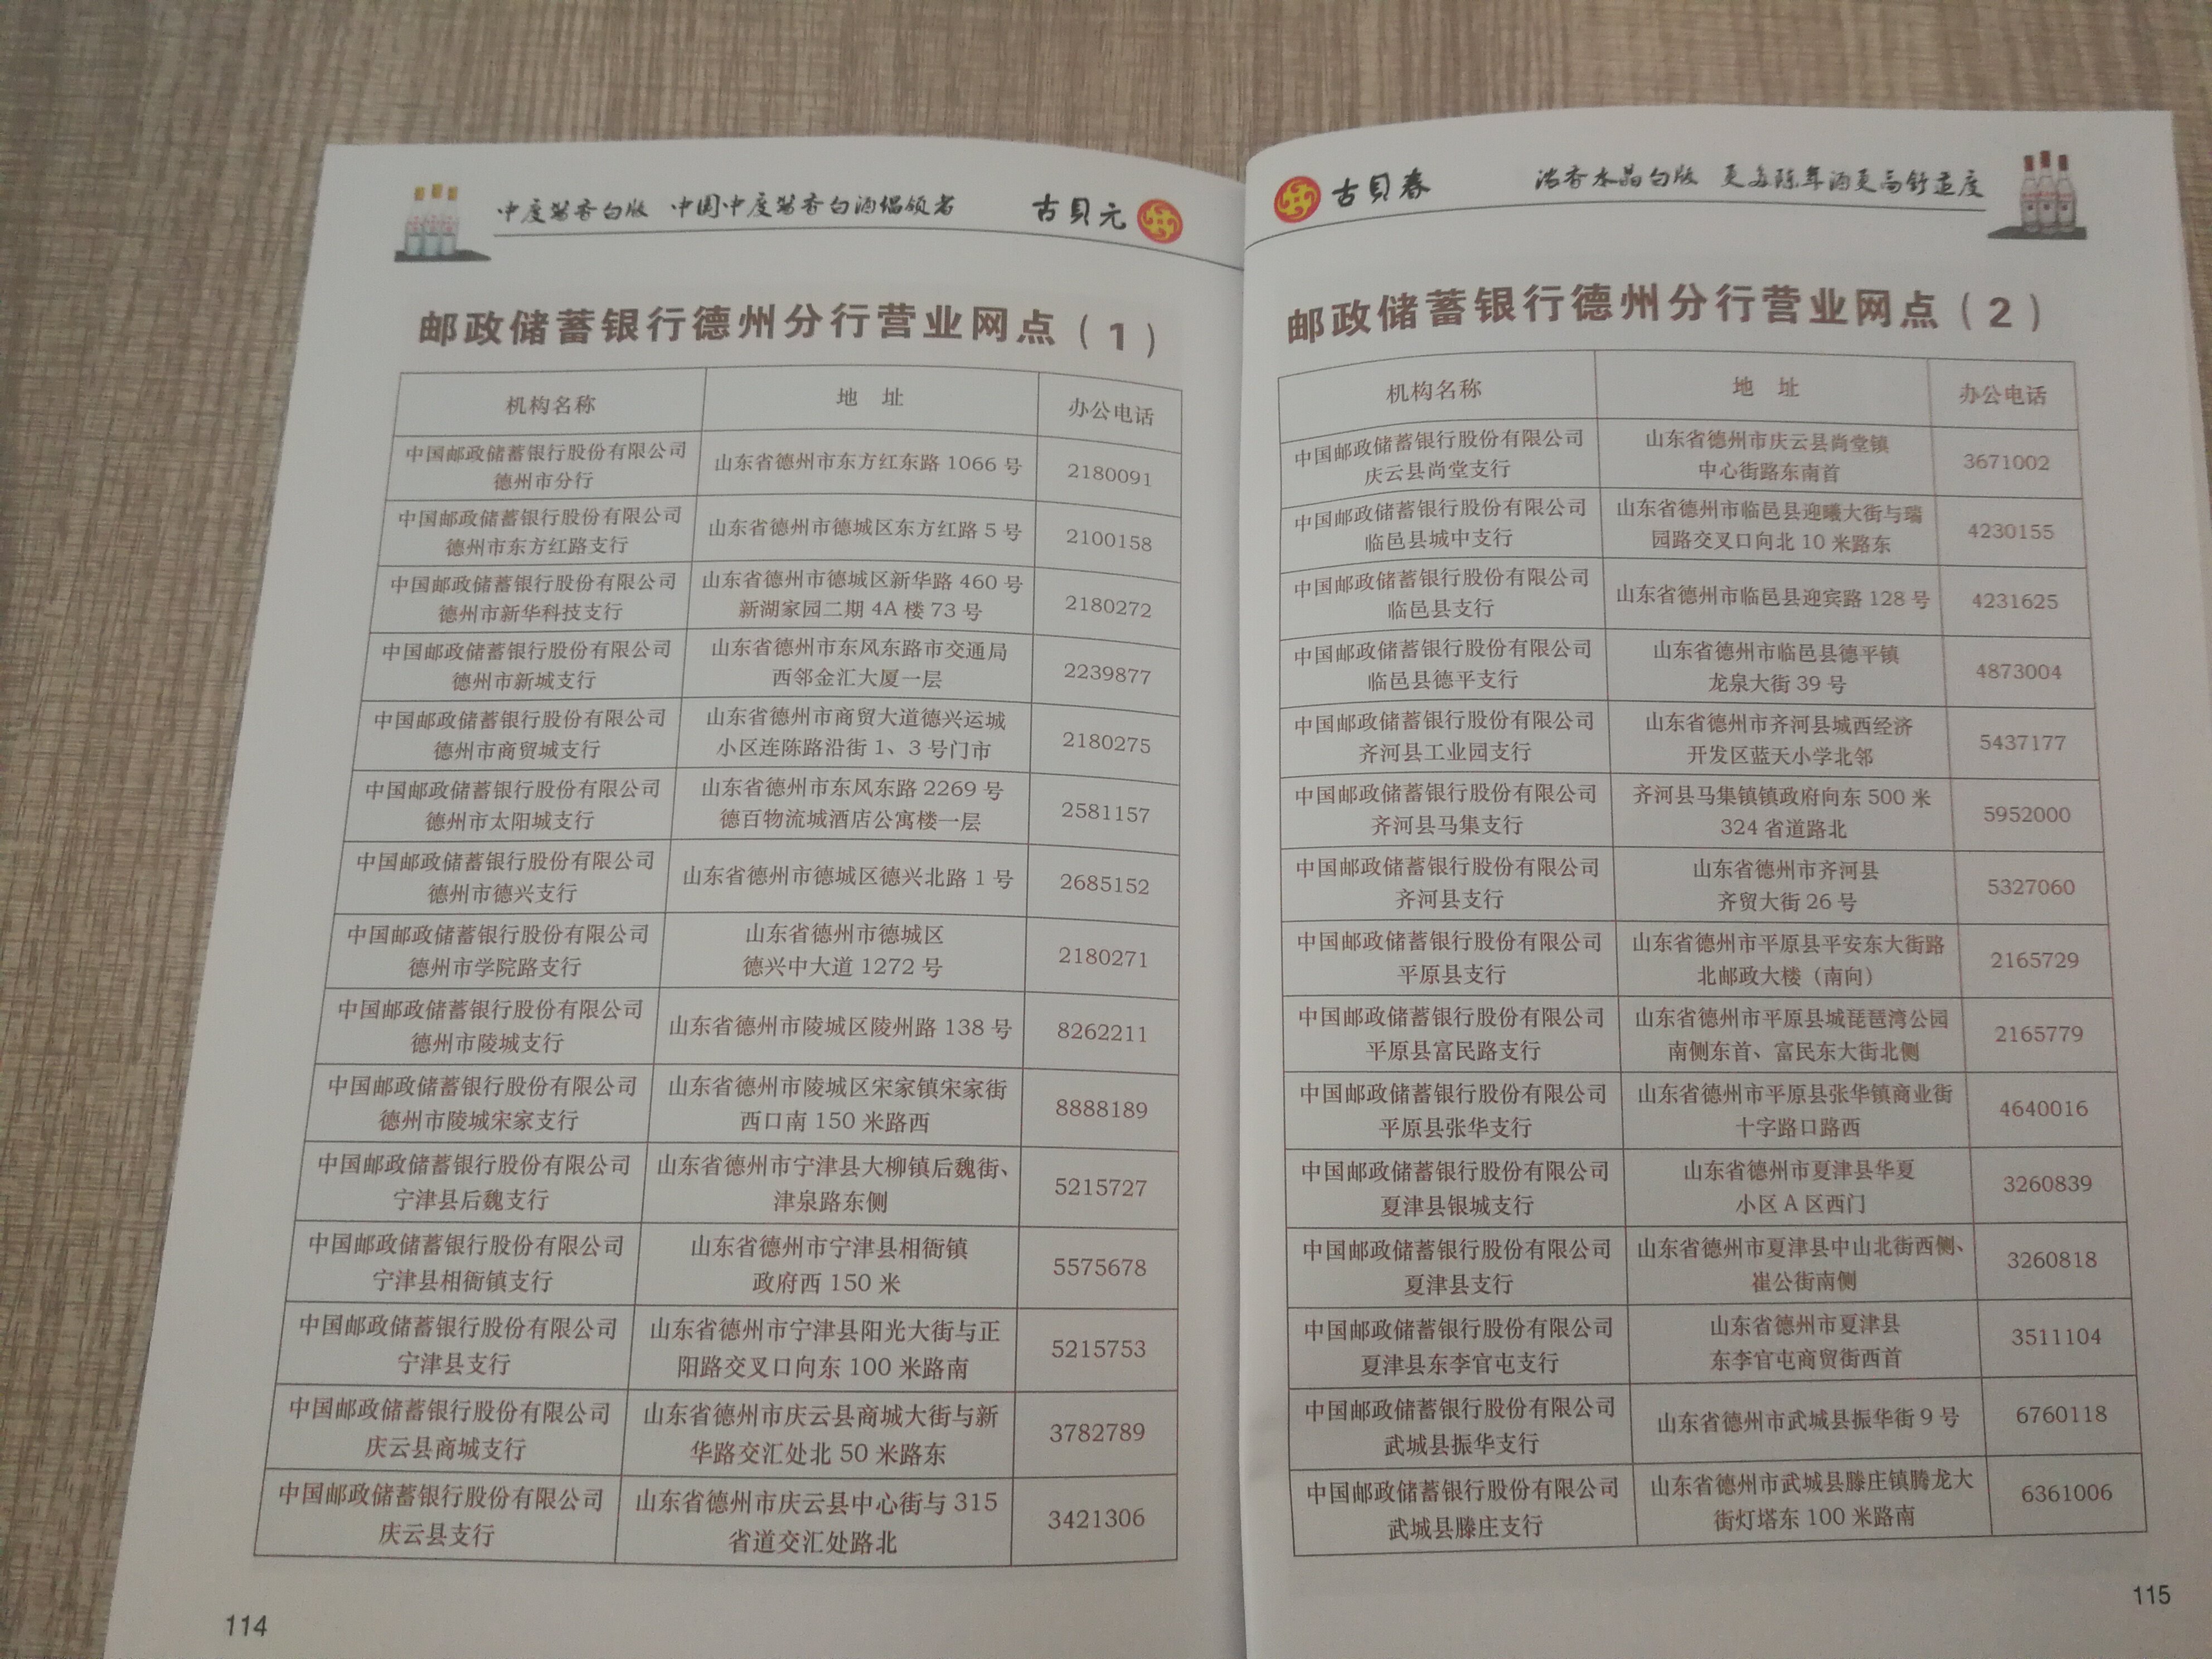 中度酱香白版 中国中度酱香白酒倡领者 古贝元
邮政储蓄银行德州分行营业网点(1)
机构名称 地 址 办公电话
中国邮政储蓄银行股份有限公司
德州市分行
山东省德州市东方红东路 1066 号
2180091
中国邮政储蓄银行股份有限公司
德州市东方红路支行
山东省德州市德城区东方红路 5 号
2100158
中国邮政储蓄银行股份有限公司
德州市新华科技支行
山东省德州市德城区新华路 460 号
新湖家园二期 4A 楼 73 号
2180272
中国邮政储蓄银行股份有限公司
德州市新城支行
山东省德州市东风东路市交通局
西邻金汇大厦一层
2239877
中国邮政储蓄银行股份有限公司
德州市商贸城支行
山东省德州市商贸大道德兴运城
小区连陈路沿街 1、3 号门市
2180275
中国邮政储蓄银行股份有限公司
德州市太阳城支行
山东省德州市东风东路 2269 号
德百物流城酒店公寓楼一层
2581157
中国邮政储蓄银行股份有限公司
德州市德兴支行
山东省德州市德城区德兴北路 1 号
2685152
中国邮政储蓄银行股份有限公司
德州市学院路支行
山东省德州市德城区
德兴中大道 1272 号
2180271
中国邮政储蓄银行股份有限公司
德州市陵城支行
山东省德州市陵城区陵州路 138 号
8262211
中国邮政储蓄银行股份有限公司
德州市陵城宋家支行
山东省德州市陵城区宋家镇宋家街
西口南 150 米路西
8888189
中国邮政储蓄银行股份有限公司
宁津县后魏支行
山东省德州市宁津县大柳镇后魏街、
津泉路东侧
5215727
中国邮政储蓄银行股份有限公司
宁津县相衙镇支行
山东省德州市宁津县相衙镇
政府西 150 米
5575678
中国邮政储蓄银行股份有限公司
宁津县支行
山东省德州市宁津县阳光大街与正
阳路交叉口向东 100 米路南
5215753
中国邮政储蓄银行股份有限公司
庆云县商城支行
山东省德州市庆云县商城大街与新
华路交汇处北 50 米路东
3782789
中国邮政储蓄银行股份有限公司
庆云县支行
山东省德州市庆云县中心街与 315
省道交汇处路北
3421306
114
古贝春 浓香水晶白版 更多陈年酒更高舒适度
邮政储蓄银行德州分行营业网点(2)
机构名称 地 址 办公电话
中国邮政储蓄银行股份有限公司
庆云县尚堂支行
山东省德州市庆云县尚堂镇
中心街路东南首
3671002
中国邮政储蓄银行股份有限公司
临邑县城中支行
山东省德州市临邑县迎曦大街与瑞
园路交叉口向北 10 米路东
4230155
中国邮政储蓄银行股份有限公司
临邑县支行
山东省德州市临邑县迎宾路 128 号
4231625
中国邮政储蓄银行股份有限公司
临邑县德平支行
山东省德州市临邑县德平镇
龙泉大街 39 号
4873004
中国邮政储蓄银行股份有限公司
齐河县工业园支行
山东省德州市齐河县城西经济
开发区蓝天小学北邻
5437177
中国邮政储蓄银行股份有限公司
齐河县马集支行
齐河县马集镇镇政府向东 500 米
324 省道路北
5952000
中国邮政储蓄银行股份有限公司
齐河县支行
山东省德州市齐河县
齐贸大街 26 号
5327060
中国邮政储蓄银行股份有限公司
平原县支行
山东省德州市平原县平安东大街路
北邮政大楼（南向）
2165729
中国邮政储蓄银行股份有限公司
平原县富民路支行
山东省德州市平原县城琵琶湾公园
南侧东首、富民东大街北侧
2165779
中国邮政储蓄银行股份有限公司
平原县张华支行
山东省德州市平原县张华镇商业街
十字路口路西
4640016
中国邮政储蓄银行股份有限公司
夏津县银城支行
山东省德州市夏津县华夏
小区 A 区西门
3260839
中国邮政储蓄银行股份有限公司
夏津县支行
山东省德州市夏津县中山北街西侧、
崔公街南侧
3260818
中国邮政储蓄银行股份有限公司
夏津县东李官屯支行
山东省德州市夏津县
东李官屯商贸街西首
3511104
中国邮政储蓄银行股份有限公司
武城县振华支行
山东省德州市武城县振华街 9 号
6760118
中国邮政储蓄银行股份有限公司
武城县滕庄支行
山东省德州市武城县滕庄镇腾龙大
街灯塔东 100 米路南
6361006
115